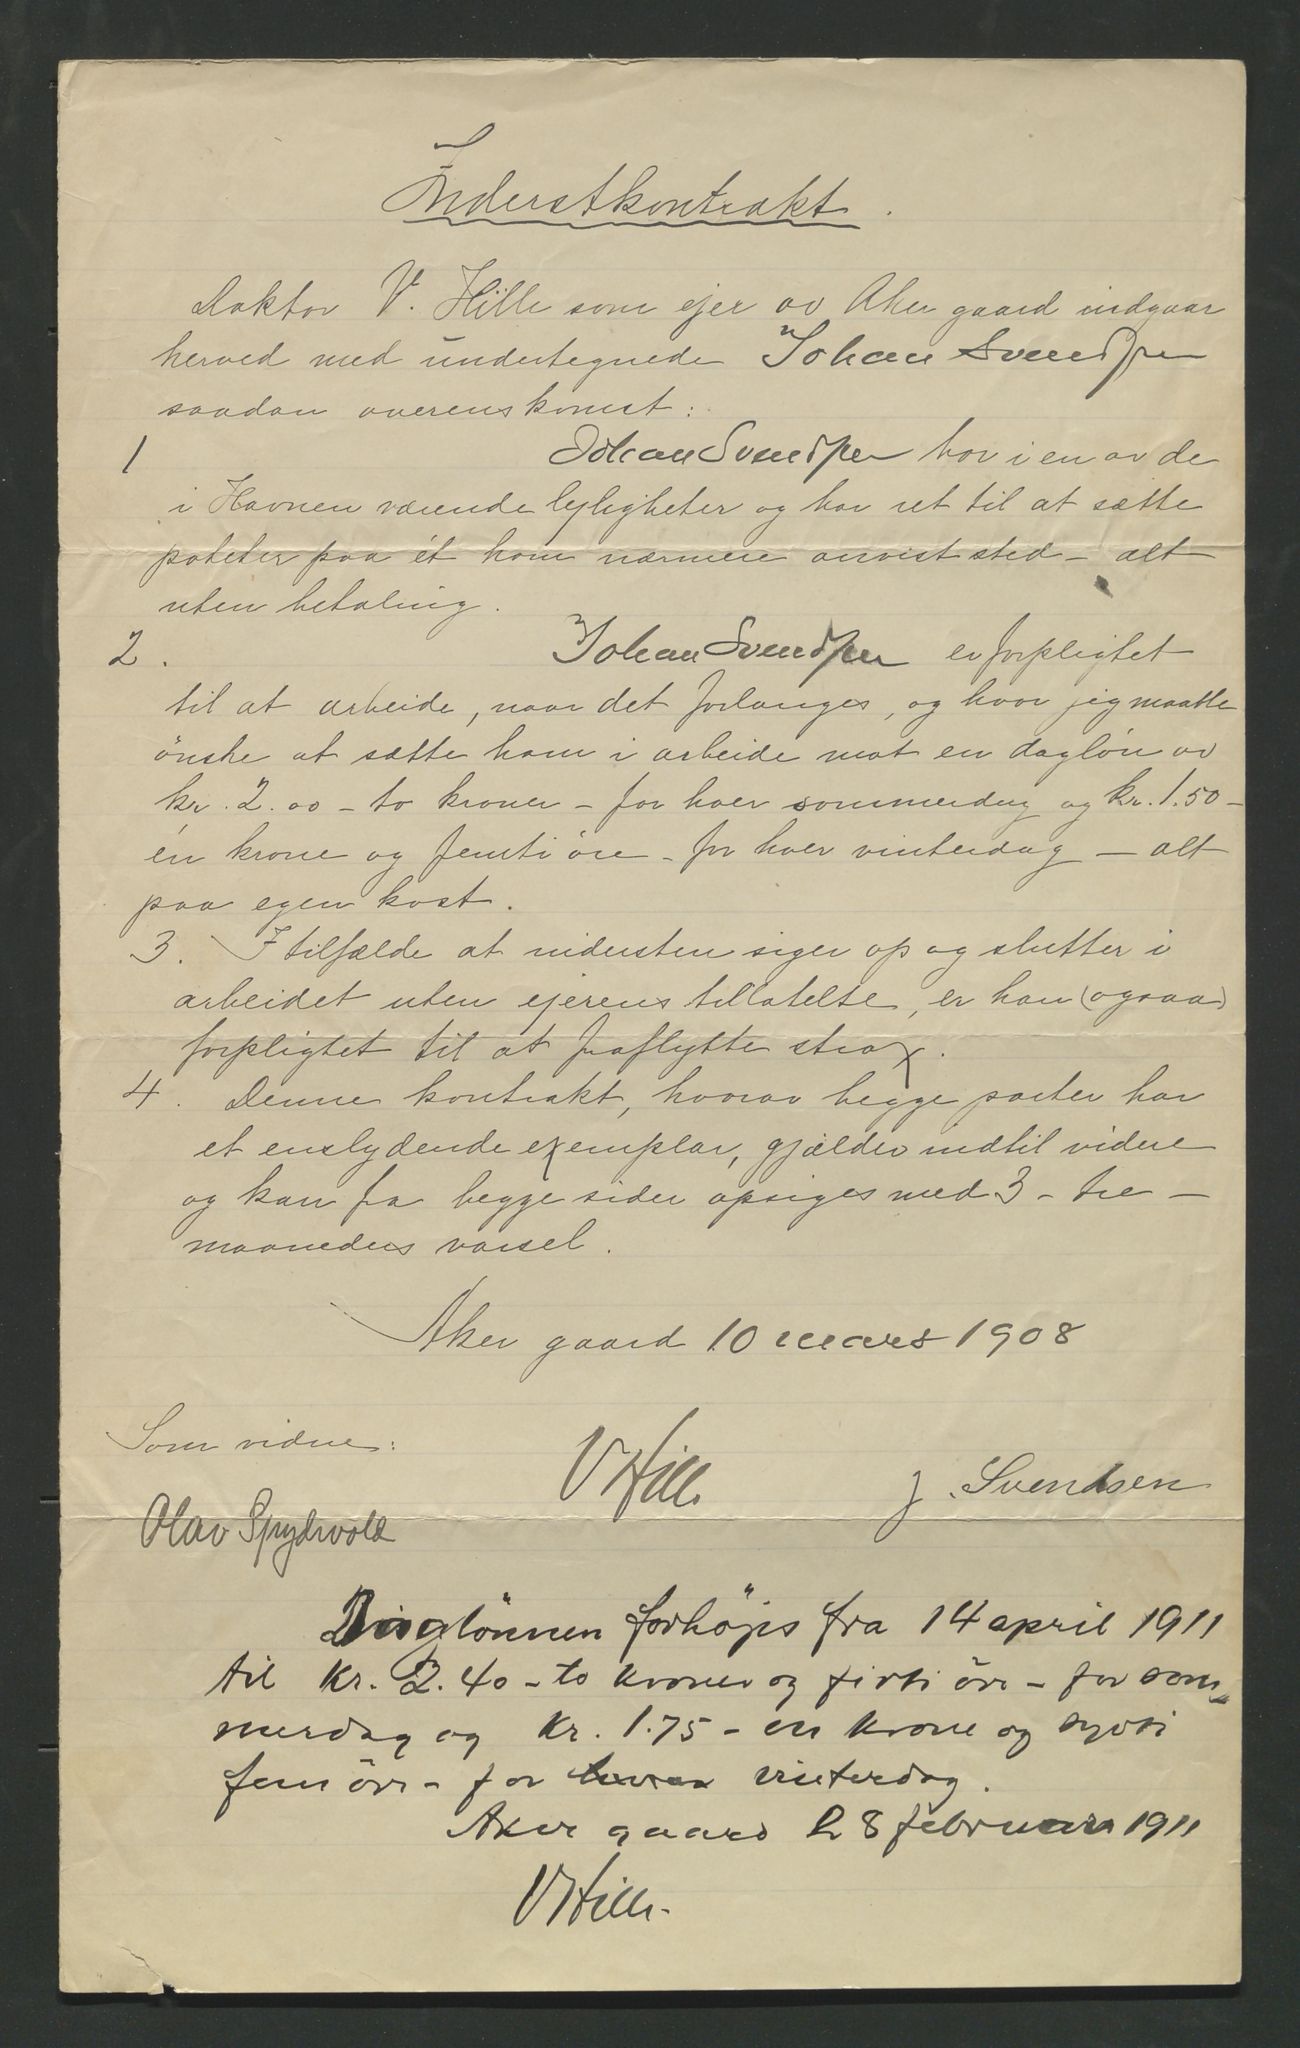 Inderstkontrakt.
Doktor V. Hille som ejer av Aker gaard indgaar
herved med undertegnede Johan Svendsen
saadan overenskomst:
1 Johan Svendsen bor i en av de
i Havnen værende lejligheter og har ret til at sætte
poteter paa ét ham nærmere anvist sted - alt
uten betaling.
2. Johan Svendsen er forpligtet
til at arbeide, naar det forlanges, og hvor jeg maatte
önske at sætte ham i arbeide mot en daglön av
kr. 2.00 - to kroner - for hver sommerdag og kr. 1.50 -
én krone og femti öre - for hver vinterdag - alt
paa egen kost.
3. I tilfælde at indersten siger op og slutter i
arbeidet uten ejerens tillatelse, er han (ogsaa)
forpligtet til at fraflytte strax.
4. Denne kontrakt, hvorav begge parter har
et enslydende exemplar, gjælder indtil videre
og kan fra begge sider opsiges med 3 - tre -
maaneders varsel.
Aker gaard 10 mars 1908
Som vidne:
V Hille J. Svendsen
Olav Spydevold
Daglönnen forhöjes fra 14 april 1911
til kr. 2.40 - to kroner og firti öre - for som-
merdag og kr. 1.75 - en krone og sytti
fem öre - for hver vinterdag.
Aker gaard 28 februar 1911
V Hille.